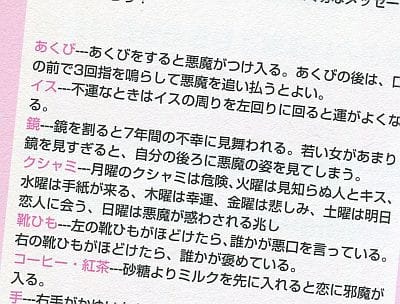 なメッセー
あくび---あくびをすると悪魔がつけ入る。あくびの後は、口
の前で3回指を鳴らして悪魔を追い払うとよい。
イス---不運なときはイスの周りを左回りに回ると運がよくな
る。
鏡---鏡を割ると7年間の不幸に見舞われる。若い女があまり
鏡を見すぎると、自分の後ろに悪魔の姿を見てしまう。
クシャミ---月曜のクシャミは危険、火曜は見知らぬ人とキス、
水曜は手紙が来る、木曜は幸運、金曜は悲しみ、土曜は明日
恋人に会う、日曜は悪魔が惑わされる兆し
靴ひも---左の靴ひもがほどけたら、誰かが悪口を言っている。
右の靴ひもがほどけたら、誰かが褒めている。
コーヒー・紅茶---砂糖よりミルクを先に入れると恋に邪魔が
入る。
手---右手がかゆい